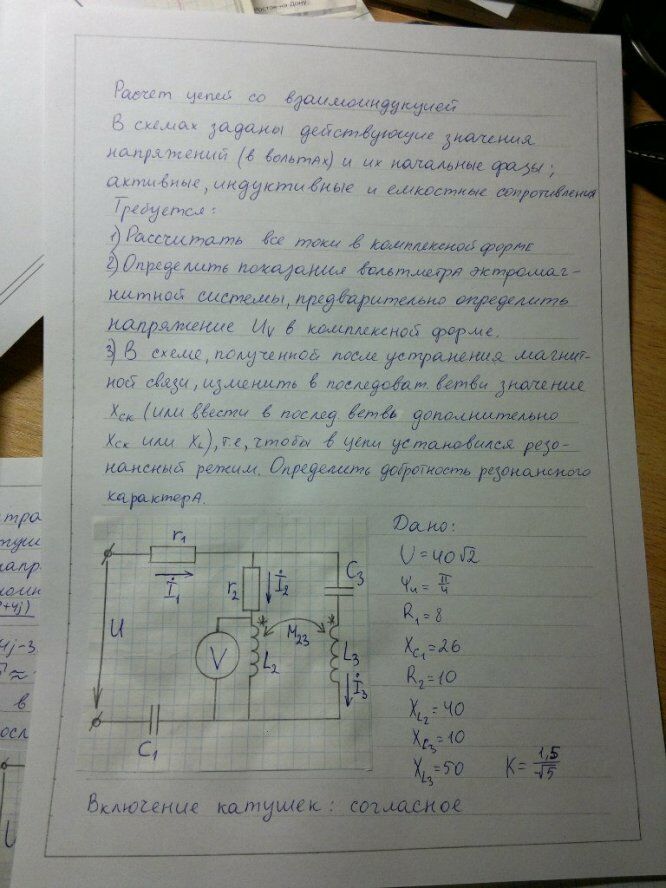 Расчет цепей со взаимоиндукцией
В схемах заданы действующие значения
напряжений (в вольтах) и их начальные фазы;
активные, индуктивные и емкостные сопротивления
Требуется:
1) Рассчитать все токи в комплексной форме
2) Определить показания вольтметра эктромаг-
нитной системы, предварительно определить
напряжение Uv в комплексной форме.
3) В схеме, полученной после устранения магнит-
ной связи, изменить в последоват. ветви значение
Xск (или ввести в послед. ветвь дополнительно
Xск или XL), т.е, чтобы в цепи установился резо-
нансный режим. Определить добротность резонансного
характера.
r1
İ1
r2
İ2
C3
U
V
L2
M23
L3
İ3
C1
*
*
Дано:
U=40√2
Ψu=π/4
R1=8
XC1=26
R2=10
XL2=40
XC3=10
XL3=50 K=1,5/√5
Включение катушек: согласное